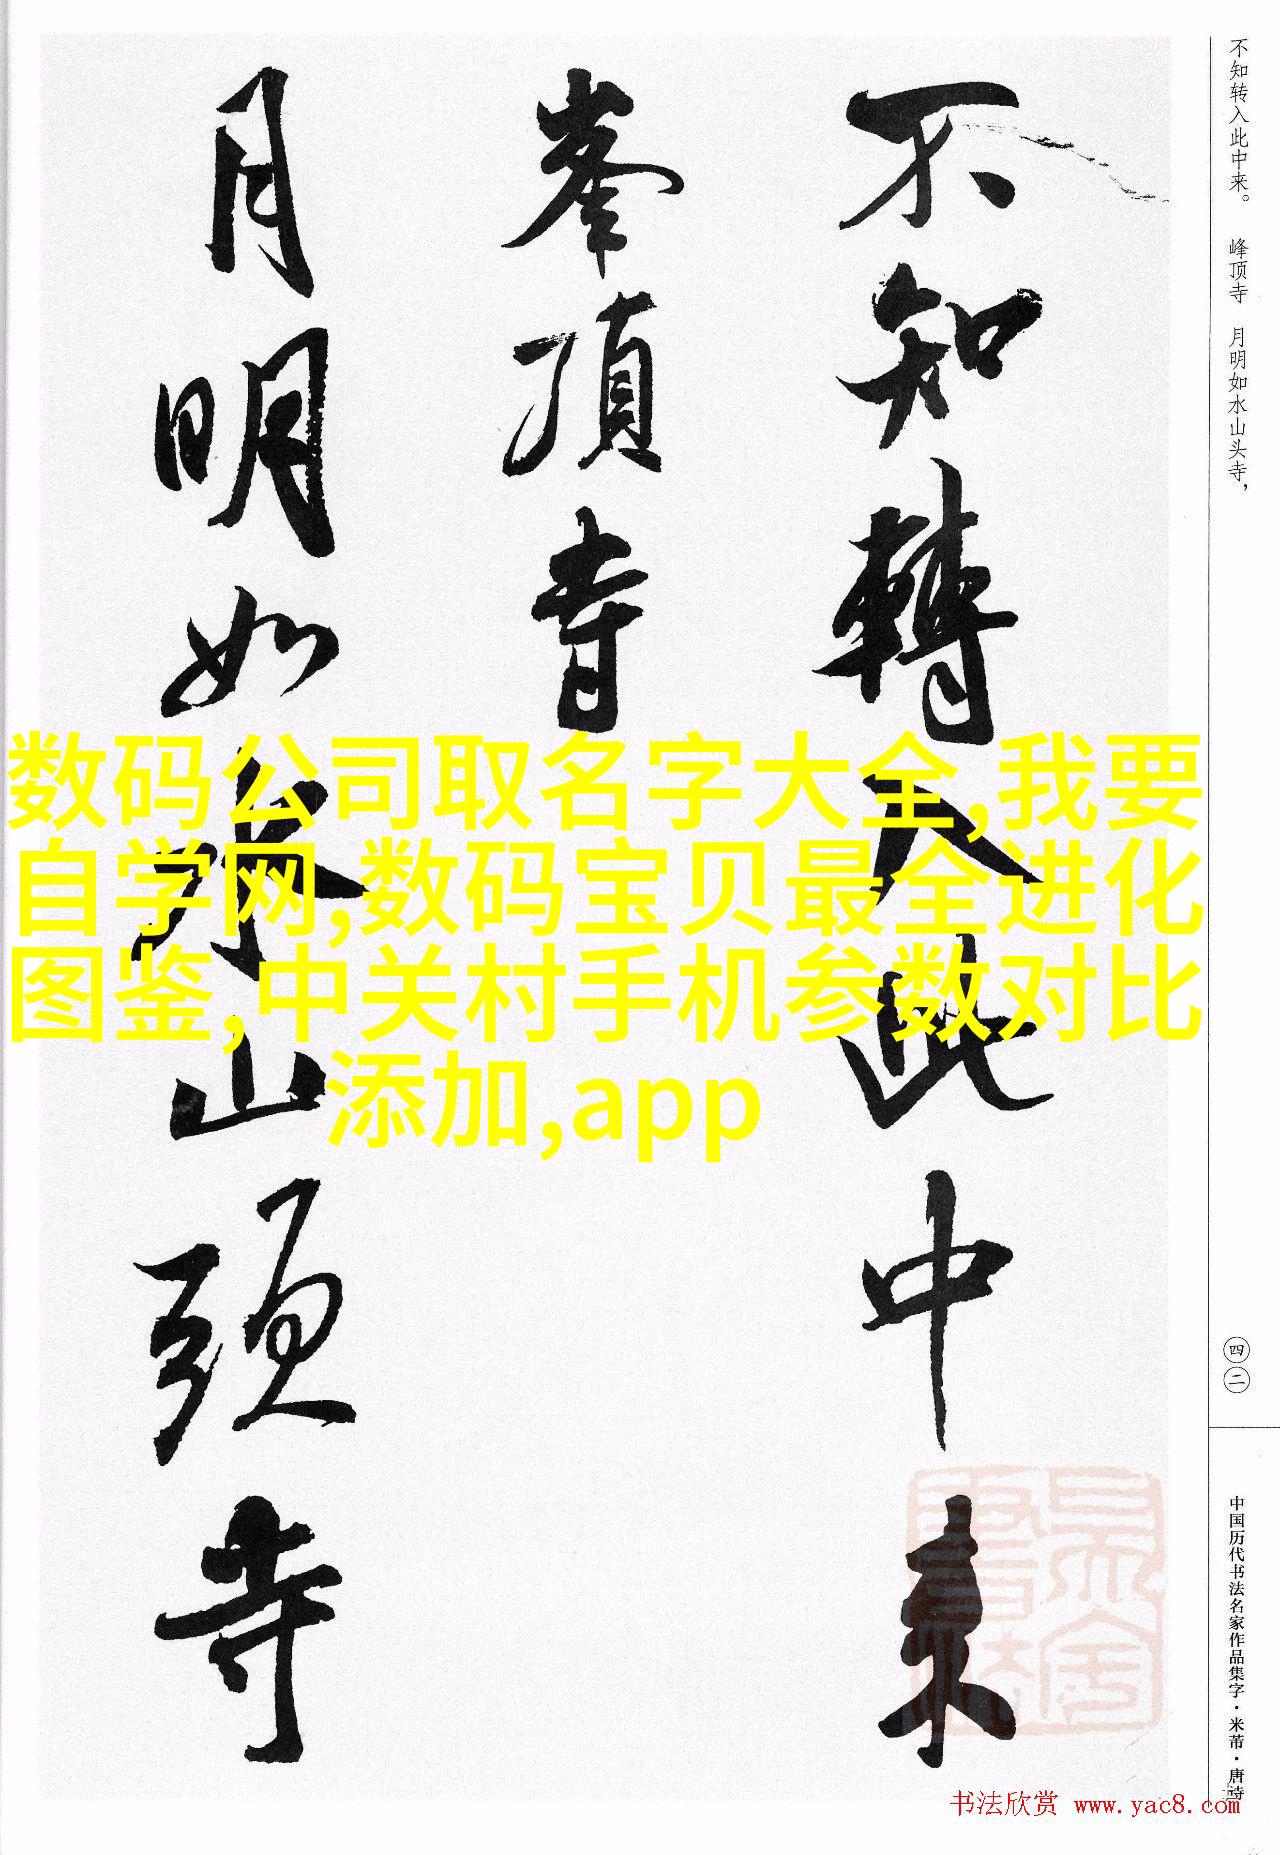 不知轉入此中來
峯頂寺
月明如水山頭寺
不知转入此中来。 峰顶寺 月明如水山头寺，
四二
中国历代书法名家作品集字·米芾·唐诗
数码公司取名字大全,我要
自学网,数码宝贝最全进化
图鉴,中关村手机参数对比
添加,app
书法欣赏 www.yac8.com